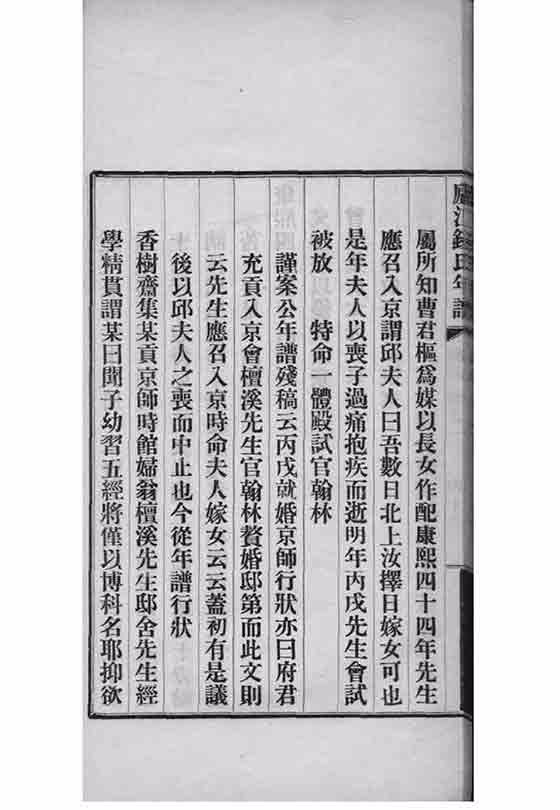 廬江錢氏年譜
屬所知曹君樞爲媒以長女作配康熙四十四年先生
應召入京謂邱夫人曰吾數日北上汝擇日嫁女可也
是年夫人以喪子過痛抱疾而逝明年丙戌先生會試
被放 特命一體殿試官翰林
謹案公年譜殘稿云丙戌就婚京師行狀亦曰府君
充貢入京會檀溪先生官翰林贅婚邸第而此文則
云先生應召入京時命夫人嫁女云云蓋初有是議
後以邱夫人之喪而中止也今從年譜行狀
香樹齋集某貢京師時館婦翁檀溪先生邸舍先生經
學精貫謂某曰聞子幼習五經將僅以博科名耶抑欲